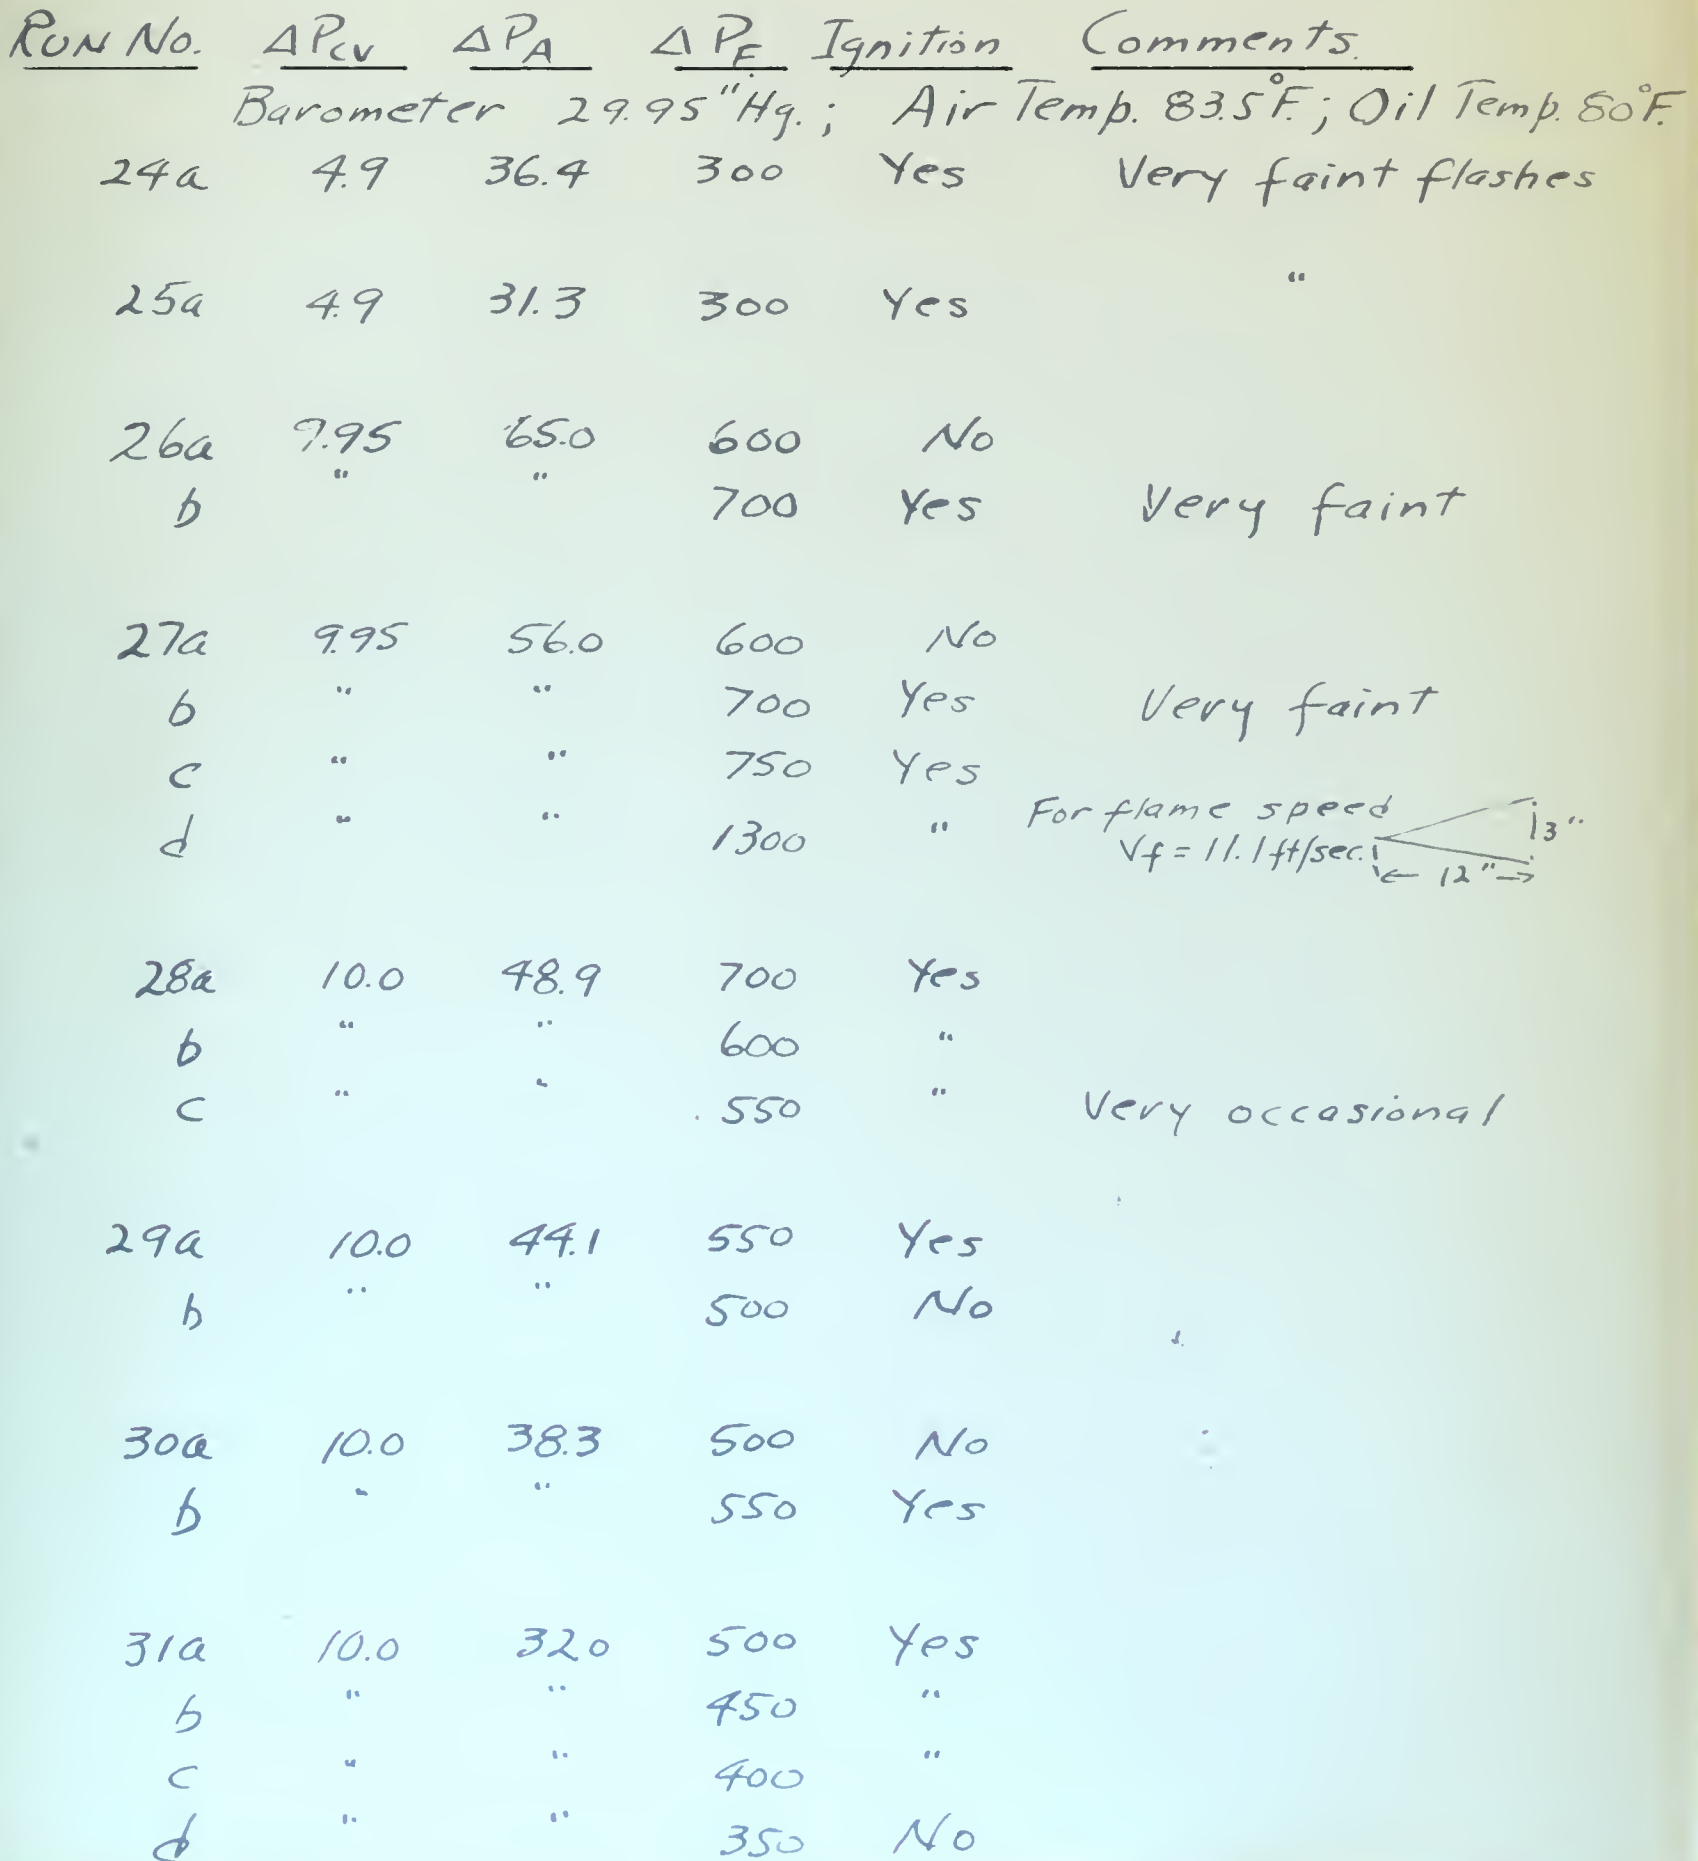 Run No. ΔPcv ΔPA ΔPF Ignition Comments.
Barometer 29.95"Hg.; Air Temp. 83.5°F.; Oil Temp. 80°F.
24a 4.9 36.4 300 Yes Very faint flashes
25a 4.9 31.3 300 Yes "
26a 9.95 65.0 600 No
b " " 700 Yes Very faint
27a 9.95 56.0 600 No
b " " 700 Yes Very faint
c " " 750 Yes
d " " 1300 " For flame speed 3"
Vf = 11.1 ft/sec. ← 12" →
28a 10.0 48.9 700 Yes
b " " 600 "
c " " 550 " Very occasional
29a 10.0 44.1 550 Yes
b " " 500 No
30a 10.0 38.3 500 No
b " " 550 Yes
31a 10.0 32.0 500 Yes
b " " 450 "
c " " 400 "
d " " 350 No